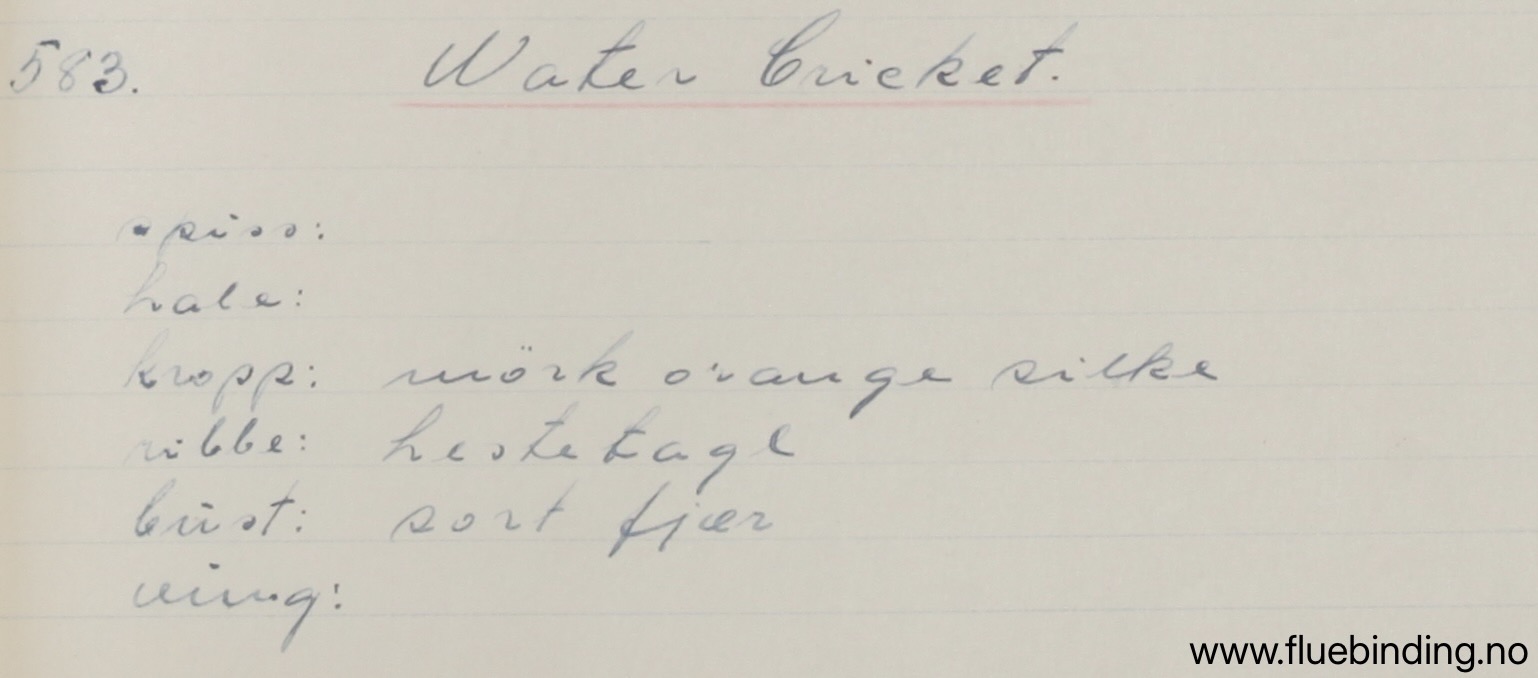 583. Water Cricket.
spiss:
hale:
kropp: mörk orange silke
ribbe: hestetagl
büst: sort fjær
ving:
www.fluebinding.no